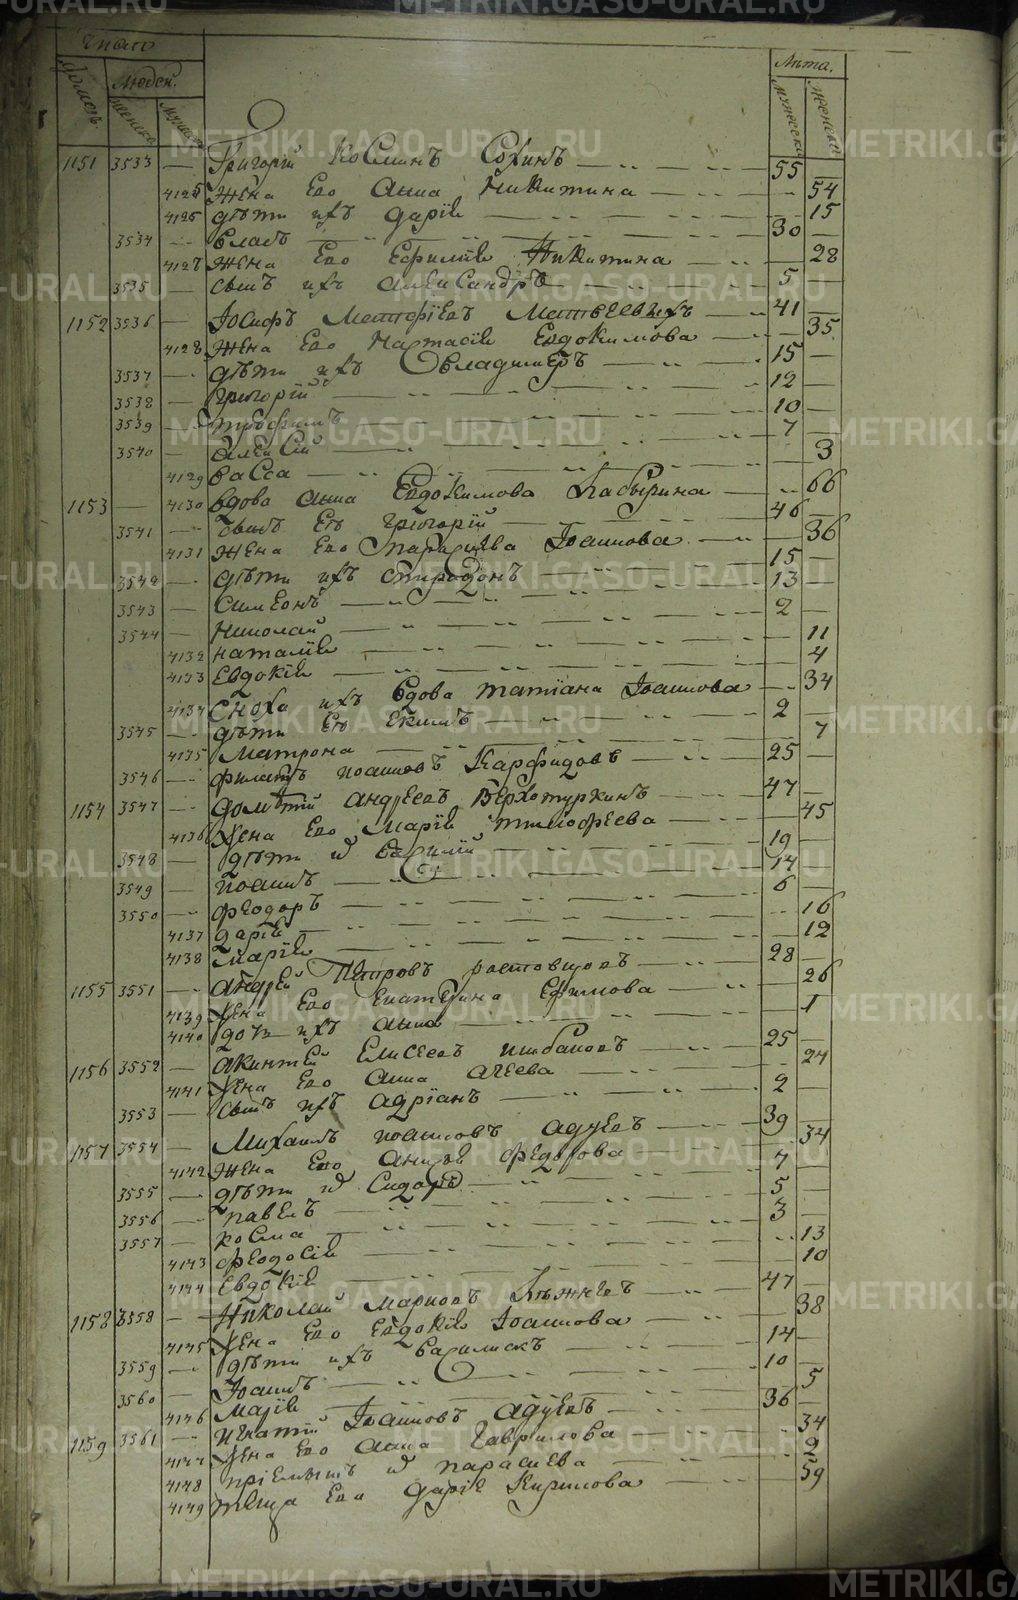 METRIKI.GASO-URAL.RU
Число
Лѣта.
Домовъ
Людей.
женска
мужеска
мужеска
женска
1151 3533 — Григорій Косминъ Сохинъ — 55 —
4125 Жена Его Анна Никитина — 54
4126 дѣти ихъ Дарія — 15
3534 — Власъ — 30 —
4127 Жена Его Ефимія Никитина — 28
3535 — сынъ ихъ Александръ — 5 —
1152 3536 — Іосифъ Матвеевыхъ — 41 —
4128 Жена Его Настасія Евдокимова — 35
3537 — дѣти ихъ Владимеръ — 15 —
3538 — Григорій — 12 —
3539 — Трофимъ — 10 —
3540 — Алексій — 7 —
4129 Васса — 3
1153 — 4130 вдова Анна Евдокимова — 66
3541 — сынъ Ея Григорій — 46 —
4131 Жена Его Параскева Іоаннова — 36
3542 — дѣти ихъ Спиридонъ — 15 —
3543 — Симеонъ — 13 —
3544 — Николай — 2 —
4132 Наталія — 11
4133 Евдокія — 4
4134 Сноха ихъ вдова Татіана Іоаннова — 34
3545 — дѣти Ея Екимъ — 2 —
4135 Матрона — 7
3546 — Филатъ Іоанновъ Карфидовъ — 25 —
1154 3547 — Дометій Андреевъ Верхотуркинъ — 47 —
4136 Жена Его Марія Тимофеева — 45
3548 — дѣти их Василій — 19 —
3549 — Іоаннъ — 14 —
3550 — Феодоръ — 6 —
4137 Дарія — 16
4138 Марія — 12
1155 3551 — Андрей Петровъ Ростовцовъ — 28 —
4139 Жена Его Екатерина Ефимова — 26
4140 дочь ихъ Анна — 1
1156 3552 — Акинтей Елисеевъ — 25 —
4141 Жена Его Анна Агеева — 24
3553 — сынъ ихъ Адріанъ — 2 —
1157 3554 — Михаилъ Іоанновъ Адуевъ — 39 —
4142 Жена Его Анисія Федорова — 34
3555 — дѣти их Сидоръ — 7 —
3556 — Павелъ — 5 —
3557 — Косма — 3 —
4143 Феодосія — 13
4144 Евдокія — 10
1158 3558 — Николай Марковъ — 47 —
4145 Жена Его Евдокія Іоаннова — 38
3559 — дѣти ихъ Василискъ — 14 —
3560 — Іоаннъ — 10 —
4146 Марія — 5
1159 3561 — Игнатій Іоанновъ Адуевъ — 36 —
4147 Жена Его Анна Гаврилова — 34
4148 их Параскева — 9
4149 теща Его Дарія Кирилова — 59